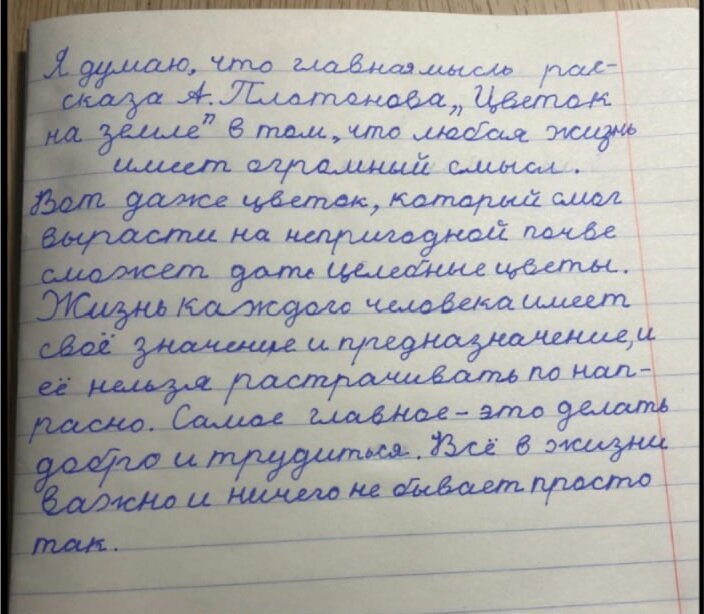 Я думаю, что главная мысль рас-
сказа А. Платонова „Цветок
на земле" в том, что любая жизнь
имеет огромный смысл.
Вот даже цветок, который смог
вырасти на непригодной почве
сможет дать целебные цветы.
Жизнь каждого человека имеет
своё значение и предназначение, и
её нельзя растрачивать по нап-
расно. Самое главное - это делать
добро и трудиться. Всё в жизни
важно и ничего не бывает просто
так.